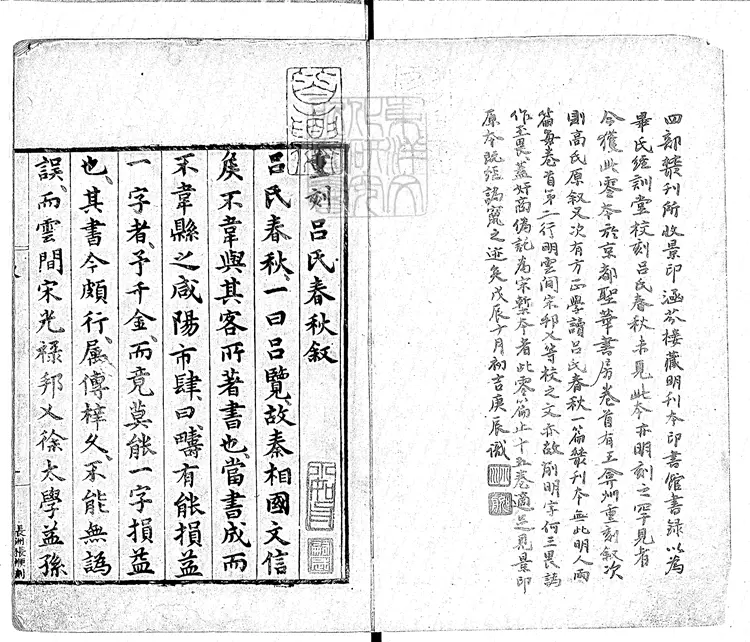 四部叢刊所收景印涵芬樓藏明刊本印書館書錄以為
畢氏經訓堂校刻呂氏春秋未見此本亦明刻之罕見者
今獲此零本於京都聖華書房卷首有王弇州重刻敘次
則高氏原叙又次有方正學讀呂氏春秋一篇叢刊本無此明人兩
篇每卷首第二行明雲間宋邦乂等校之文亦故削明字何三畏譌
作王畏蓋奸商偽託為宋槧本者此零篇止十五卷適足見景印
原本既經譌竄之迹矣戊辰十月初吉庚辰識
重刻呂氏春秋叙
呂氏春秋一曰呂覽故秦相國文信
矦不韋與其客所著書也當書成而
不韋縣之咸陽市肆曰疇有能損益
一字者予千金而竟莫能一字損益
也其書今頗行屬傳梓久不能無譌
誤而雲間宋光祿邦乂徐太學益孫
長洲張櫆刻